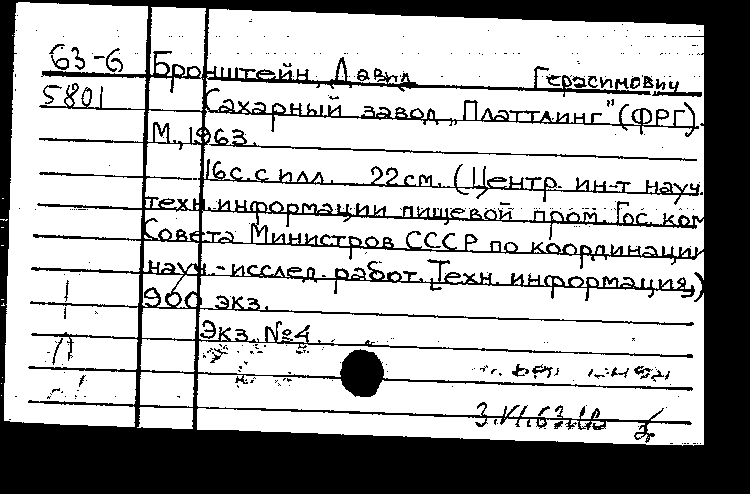 63-6 Бронштейн, Давид Герасимович
5801 Сахарный завод „Платтлинг" (ФРГ).
М., 1963.
16с. с илл. 22см. (Центр. ин-т науч.
техн. информации пищевой пром. Гос. ком
Совета Министров СССР по координации
науч.-исслед. работ. Техн. информация)
900 экз.
Экз. №4.
3.VI.63